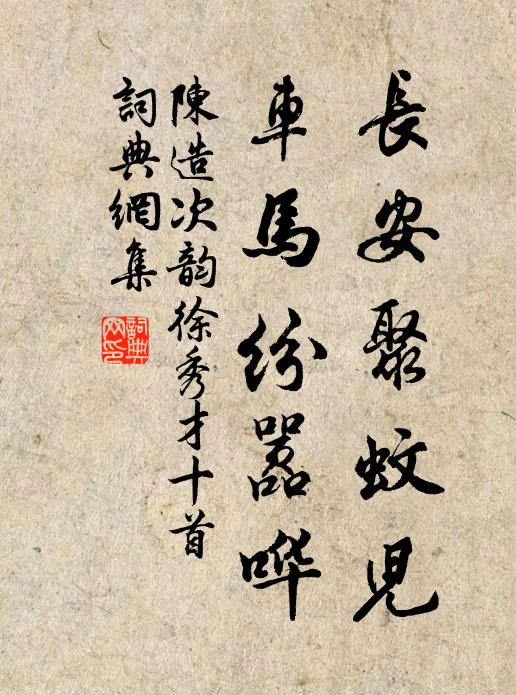 長安聚蚊児
車馬紛嚣哗
陳造次韵徐秀才十首
詞典網集
詞典网印